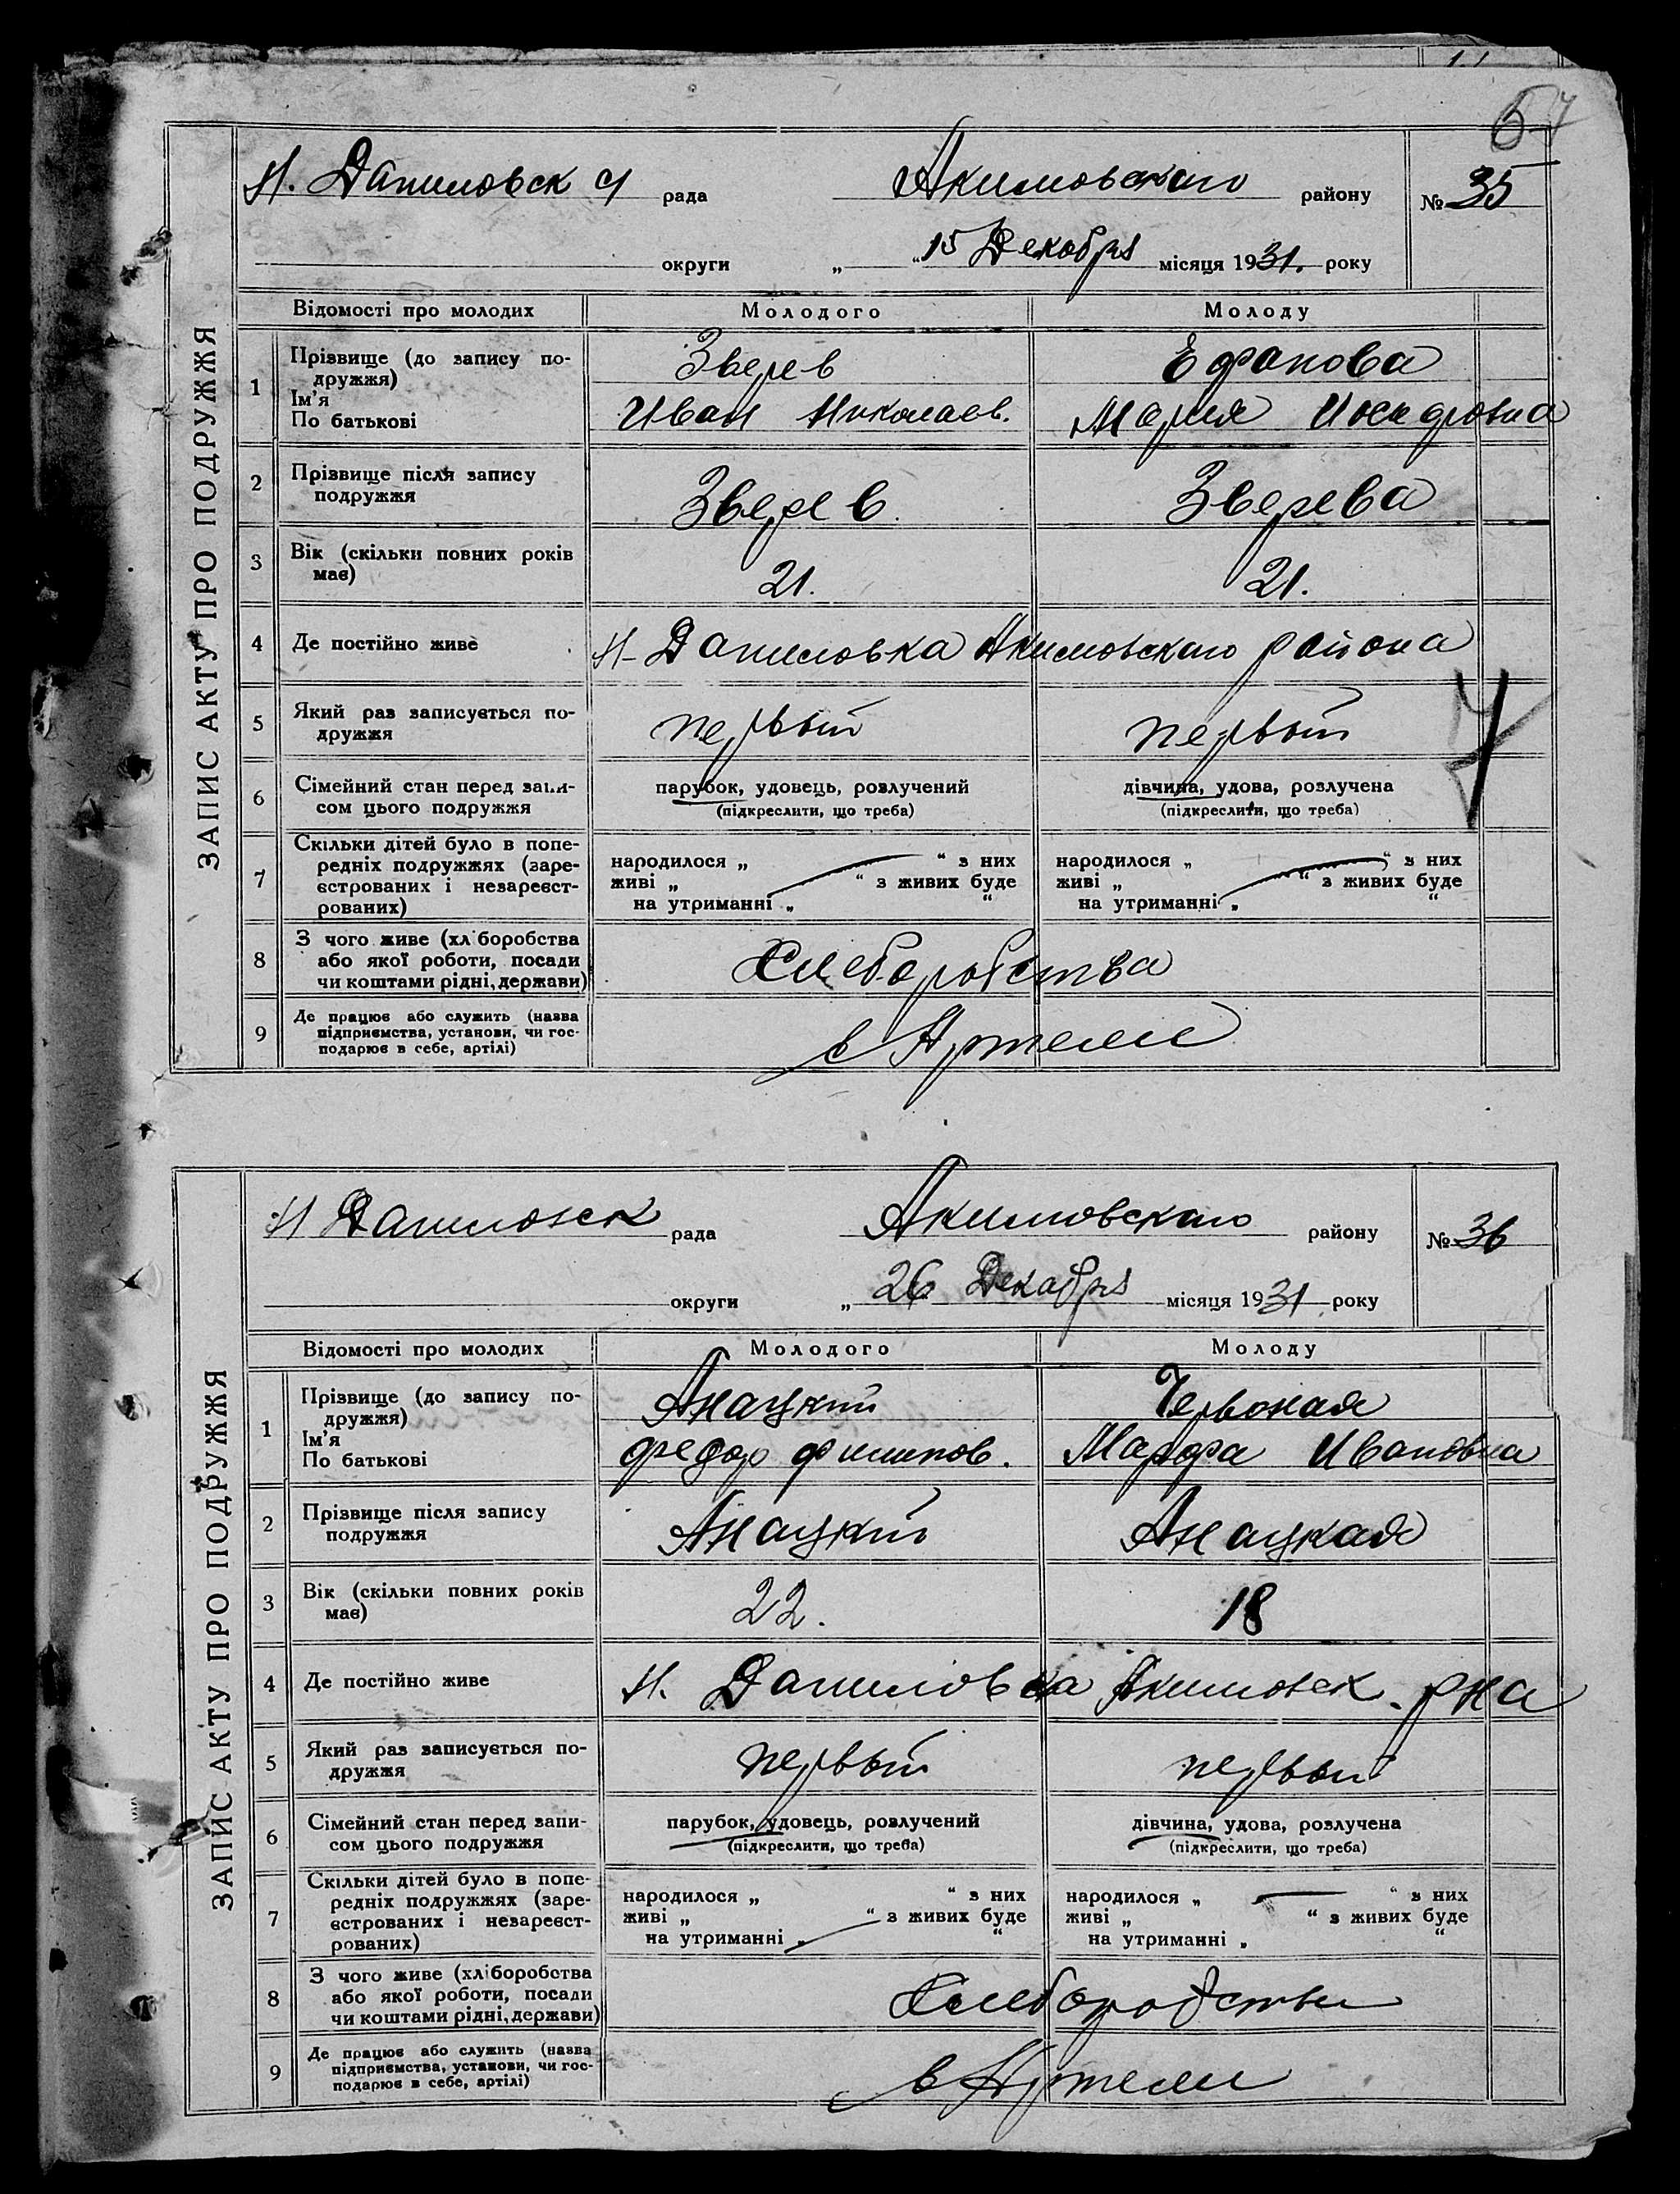 57
ЗАПИС АКТУ ПРО ПОДРУЖЖЯ
Н. Даниловск рада Акимовского району № 35
округи „ “ 15 Декабря місяця 1931. року
Відомості про молодих Молодого Молоду
1 Прізвище (до запису по-
дружжя) Зверев Ефанова
Ім'я
По батькові Иван Николаев. Мария
2 Прізвище після запису
подружжя Зверев Зверева
3 Вік (скільки повних років
має) 21. 21.
4 Де постійно живе Н-Даниловка Акимовского района
5 Який раз записується по-
дружжя первый первый
6 Сімейний стан перед запи-
сом цього подружжя парубок, удовець, розлучений дівчина, удова, розлучена
(підкреслити, що треба) (підкреслити, що треба)
7 Скільки дітей було в попе-
редніх подружжях (заре-
єстрованих і незареєст-
рованих)
народилося „ “ з них народилося „ “ з них
живі „ “ з живих буде живі „ “ з живих буде
на утриманні „ “ на утриманні „ “
8 З чого живе (хліборобства
або якої роботи, посади
чи коштами рідні, держави) Хлеборобства
9 Де працює або служить (назва
підприємства, установи, чи гос-
подарює в себе, артілі) в Артели
ЗАПИС АКТУ ПРО ПОДРУЖЖЯ
Н Даниловск рада Акимовского району № 36
округи „ 26 Декабря місяця 1931 року
Відомості про молодих Молодого Молоду
1 Прізвище (до запису по-
дружжя) Анацкий Червоная
Ім'я
По батькові Федор Филипов. Марфа Ивановна
2 Прізвище після запису
подружжя Анацкий Анацкая
3 Вік (скільки повних років
має) 22. 18
4 Де постійно живе Н. Даниловка Акимовск. рна
5 Який раз записується по-
дружжя первый первый
6 Сімейний стан перед запи-
сом цього подружжя парубок, удовець, розлучений дівчина, удова, розлучена
(підкреслити, що треба) (підкреслити, що треба)
7 Скільки дітей було в попе-
редніх подружжях (заре-
єстрованих і незареєст-
рованих)
народилося „ “ з них народилося „ “ з них
живі „ “ з живих буде живі „ “ з живих буде
на утриманні „ “ на утриманні „ “
8 З чого живе (хліборобства
або якої роботи, посади
чи коштами рідні, держави)
9 Де працює або служить (назва
підприємства, установи, чи гос-
подарює в себе, артілі) в Артели